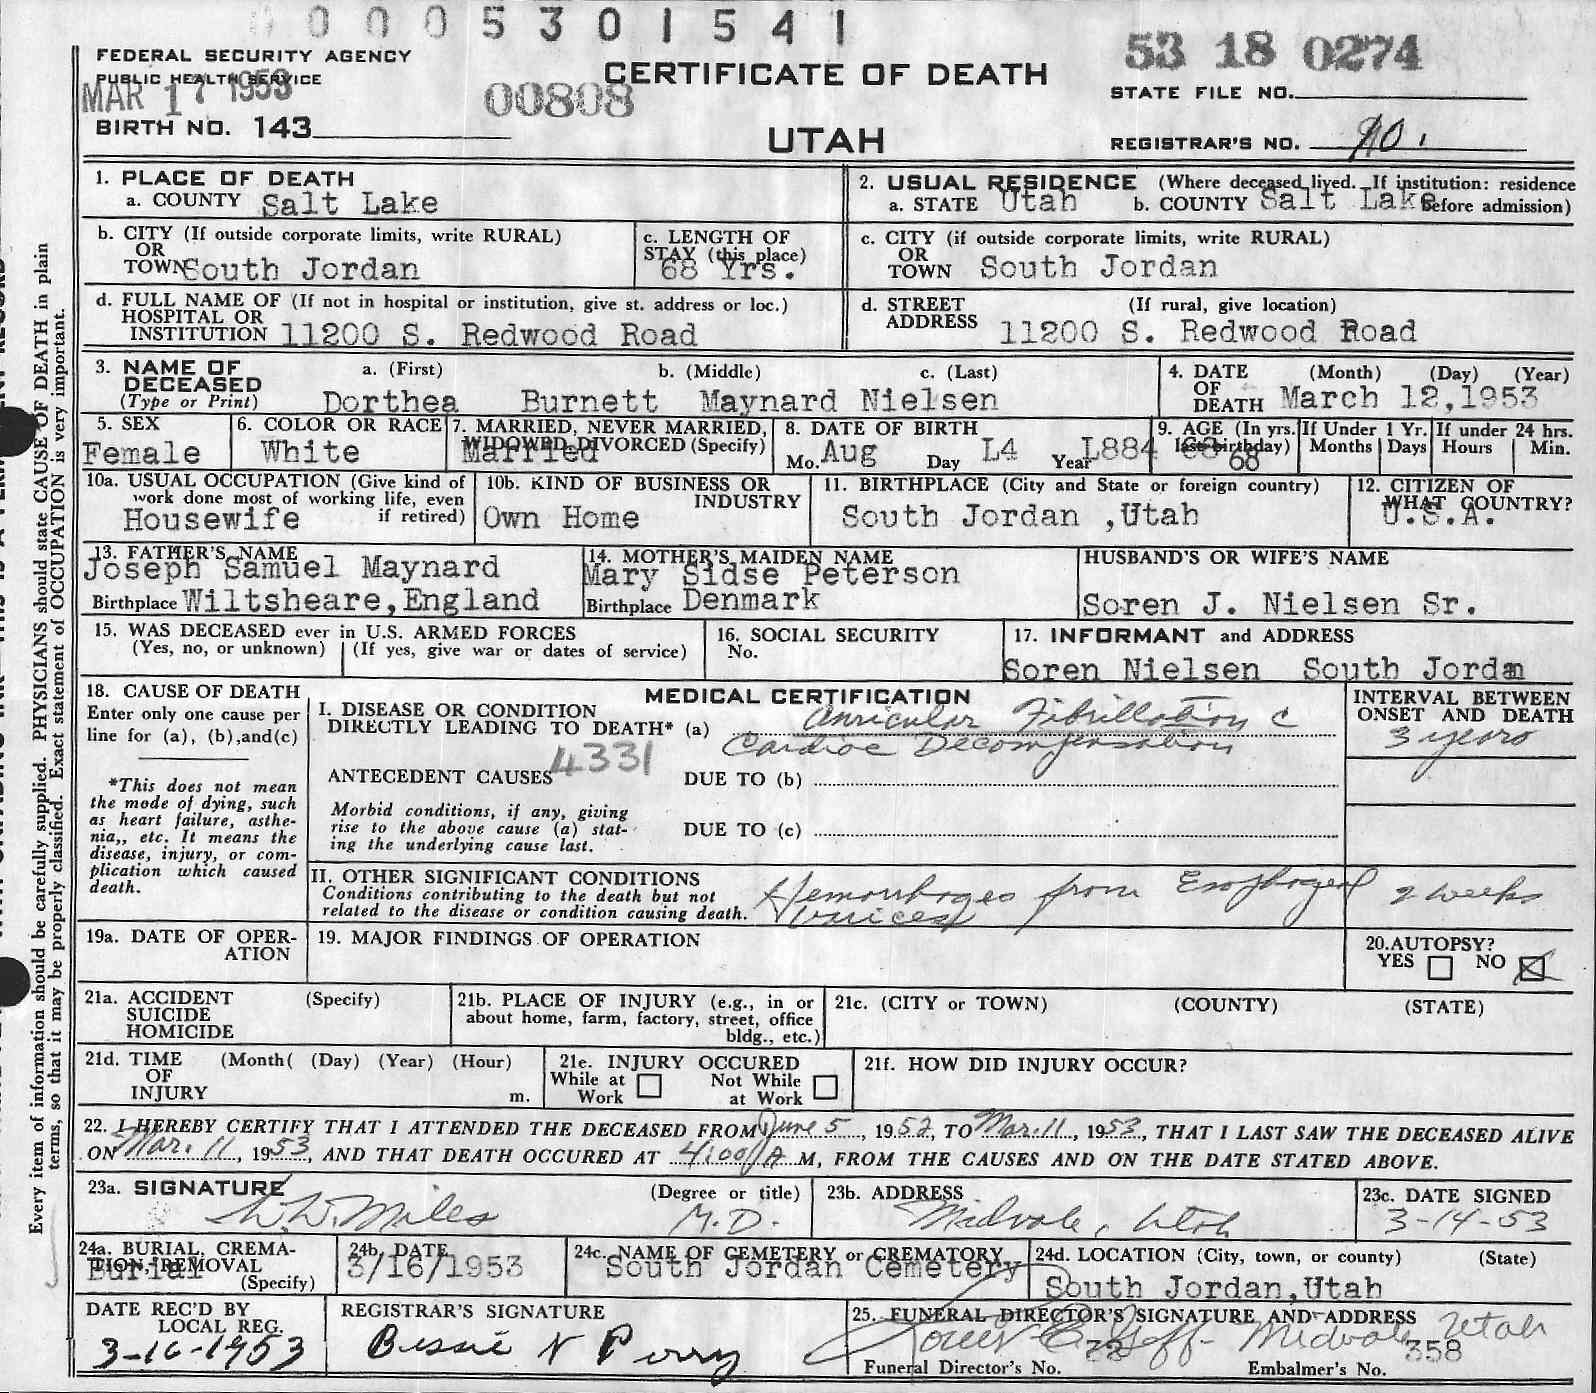 0005301541
FEDERAL SECURITY AGENCY
PUBLIC HEALTH SERVICE
MAR 17 1953
00808
CERTIFICATE OF DEATH
53 18 0274
STATE FILE NO.
BIRTH NO. 143
UTAH
REGISTRAR'S NO. 90.
1. PLACE OF DEATH
a. COUNTY Salt Lake
2. USUAL RESIDENCE (Where deceased lived. If institution: residence
a. STATE Utah b. COUNTY Salt Lake before admission)
b. CITY (If outside corporate limits, write RURAL)
OR
TOWN South Jordan
c. LENGTH OF
STAY (this place)
68 Yrs.
c. CITY (if outside corporate limits, write RURAL)
OR
TOWN South Jordan
d. FULL NAME OF (If not in hospital or institution, give st. address or loc.)
HOSPITAL OR
INSTITUTION 11200 S. Redwood Road
d. STREET (If rural, give location)
ADDRESS 11200 S. Redwood Road
3. NAME OF DECEASED
(Type or Print)
a. (First) b. (Middle) c. (Last)
Dorthea Burnett Maynard Nielsen
4. DATE (Month) (Day) (Year)
OF
DEATH March 12,1953
5. SEX
Female
6. COLOR OR RACE
White
7. MARRIED, NEVER MARRIED,
WIDOWED, DIVORCED (Specify)
Married
8. DATE OF BIRTH
Mo. Aug Day L4 Year L884
9. AGE (In yrs.
last birthday)
68
If Under 1 Yr.
Months Days
If under 24 hrs.
Hours Min.
10a. USUAL OCCUPATION (Give kind of
work done most of working life, even
if retired)
Housewife
10b. KIND OF BUSINESS OR
INDUSTRY
Own Home
11. BIRTHPLACE (City and State or foreign country)
South Jordan ,Utah
12. CITIZEN OF
WHAT COUNTRY?
U.S.A.
13. FATHER'S NAME
Joseph Samuel Maynard
Birthplace Wiltsheare,England
14. MOTHER'S MAIDEN NAME
Mary Sidse Peterson
Birthplace Denmark
HUSBAND'S OR WIFE'S NAME
Soren J. Nielsen Sr.
15. WAS DECEASED ever in U.S. ARMED FORCES
(Yes, no, or unknown) (If yes, give war or dates of service)
16. SOCIAL SECURITY
No.
17. INFORMANT and ADDRESS
Soren Nielsen South Jordan
18. CAUSE OF DEATH
Enter only one cause per
line for (a), (b),and(c)
*This does not mean
the mode of dying, such
as heart failure, asthe-
nia,, etc. It means the
disease, injury, or com-
plication which caused
death.
MEDICAL CERTIFICATION
I. DISEASE OR CONDITION
DIRECTLY LEADING TO DEATH* (a) Auricular Fibrillation c
Cardiac Decompensation
4331
ANTECEDENT CAUSES
DUE TO (b)
Morbid conditions, if any, giving
rise to the above cause (a) stat-
ing the underlying cause last.
DUE TO (c)
INTERVAL BETWEEN
ONSET AND DEATH
3 years
II. OTHER SIGNIFICANT CONDITIONS
Conditions contributing to the death but not
related to the disease or condition causing death.
Hemorrhages from Esophageal
Varices
2 weeks
19a. DATE OF OPER-
ATION
19. MAJOR FINDINGS OF OPERATION
20.AUTOPSY?
YES NO
21a. ACCIDENT (Specify)
SUICIDE
HOMICIDE
21b. PLACE OF INJURY (e.g., in or
about home, farm, factory, street, office
bldg., etc.)
21c. (CITY or TOWN) (COUNTY) (STATE)
21d. TIME (Month( (Day) (Year) (Hour)
OF
INJURY m.
21e. INJURY OCCURED
While at Work Not While at Work
21f. HOW DID INJURY OCCUR?
22. I HEREBY CERTIFY THAT I ATTENDED THE DECEASED FROM June 5, 1952, TO Mar. 11, 1953, THAT I LAST SAW THE DECEASED ALIVE
ON Mar. 11, 1953, AND THAT DEATH OCCURED AT 4:00 A M, FROM THE CAUSES AND ON THE DATE STATED ABOVE.
23a. SIGNATURE (Degree or title)
W.W. Miles M.D.
23b. ADDRESS
Midvale, Utah
23c. DATE SIGNED
3-14-53
24a. BURIAL, CREMA-
TION, REMOVAL
(Specify)
Burial
24b. DATE
3/16/1953
24c. NAME OF CEMETERY or CREMATORY
South Jordan Cemetery
24d. LOCATION (City, town, or county) (State)
South Jordan,Utah
DATE REC'D BY
LOCAL REG.
3-16-1953
REGISTRAR'S SIGNATURE
Bessie N Perry
25. FUNERAL DIRECTOR'S SIGNATURE AND ADDRESS
Goff Midvale Utah
Funeral Director's No. Embalmer's No. 358
Every item of information should be carefully supplied. PHYSICIANS should state CAUSE OF DEATH in plain
terms, so that it may be properly classified. Exact statement of OCCUPATION is very important.